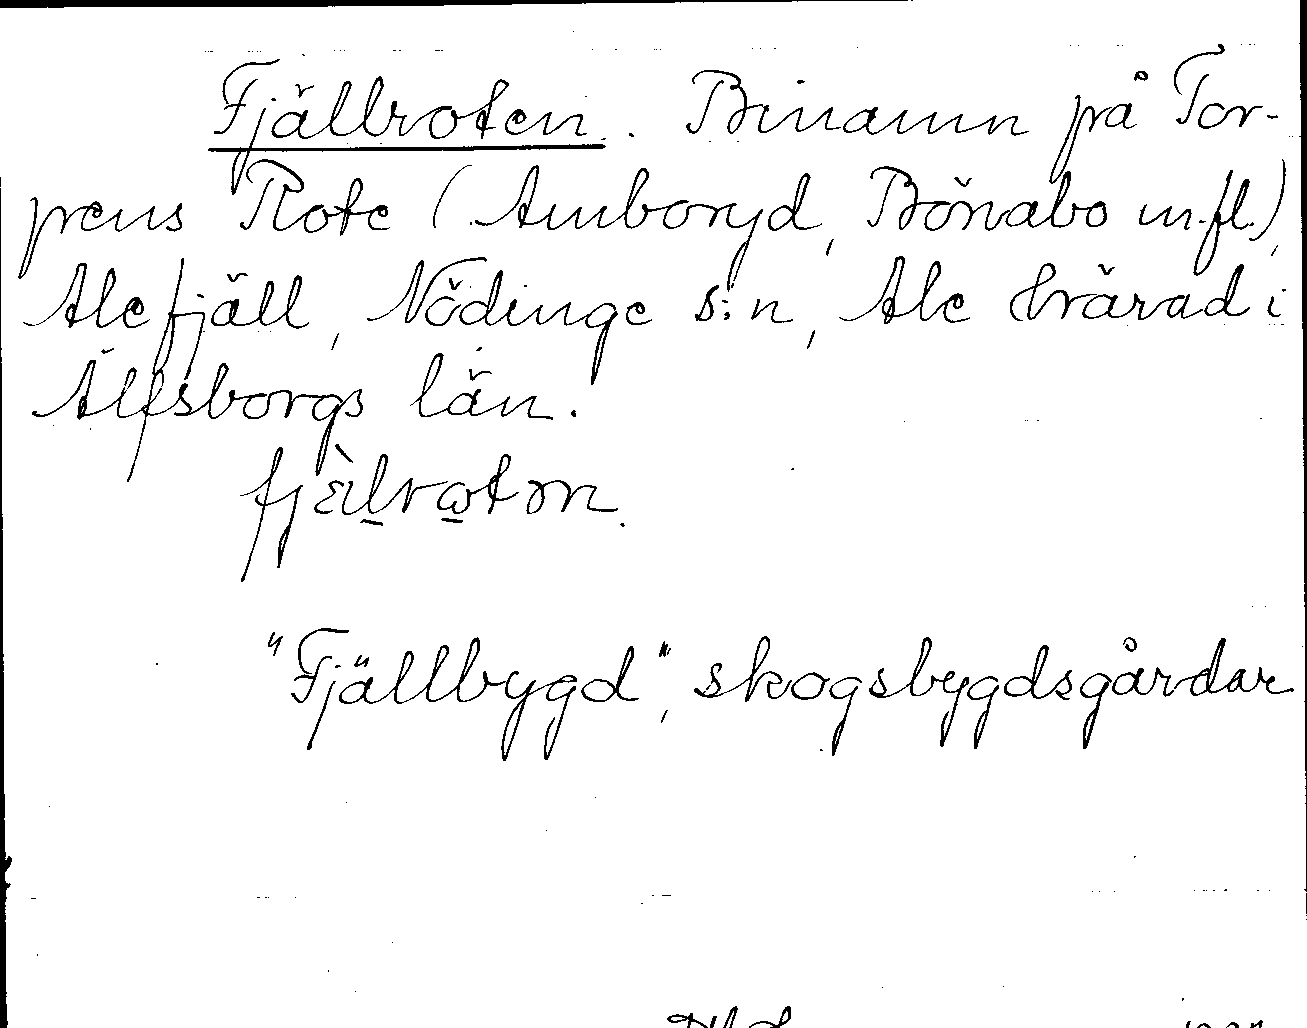 Fjällroten. Binamn på Tor-
pens Rote (Amboryd, Bönabo m.fl.),
Alefjäll, Nödinge s:n, Ale härad i
Älfsborgs län.
"Fjällbygd", skogsbygdsgårdar